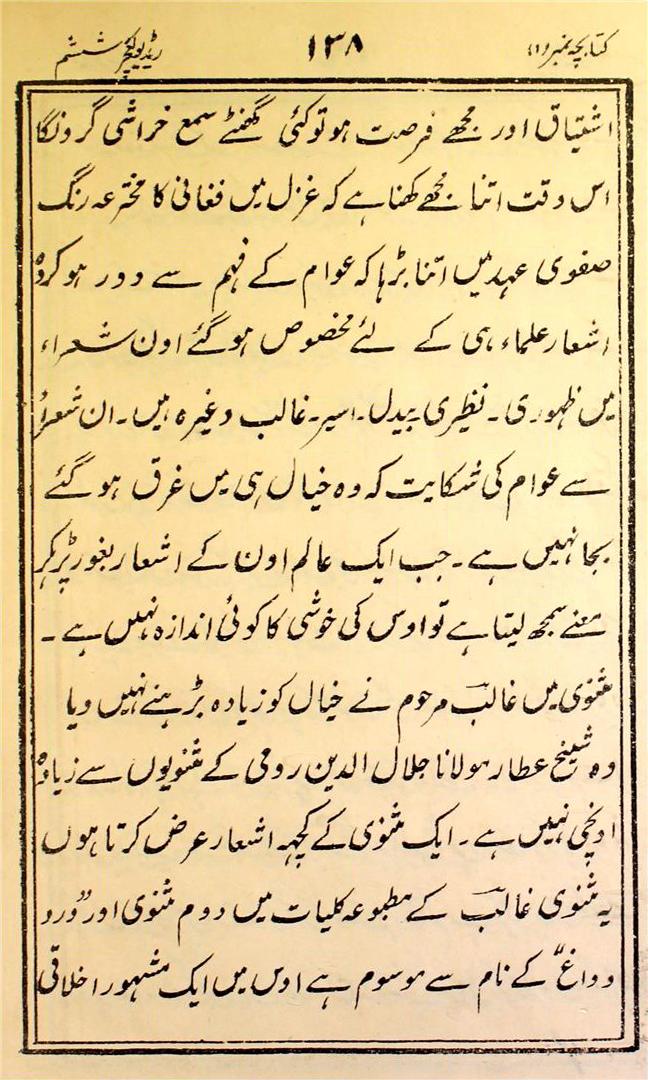 کتابچہ نمبر (۱) ۱۳۸ ریڈیو لکچر ششم
اشتیاق اور مجھے فرصت ہو تو کئی گھنٹے سمع خراشی کرونگا
اس وقت اتنا مجھے کہنا ہے کہ غزل میں فغانی کا مخترعہ رنگ
صفوی عہد میں اتنا بڑہا کہ عوام کے فہم سے دور ہو کر وہ
اشعار علماء ہی کے لئے مخصوص ہو گئے اون شعراء
میں ظہوری۔ نظیری بیدل۔ اسیر۔ غالب وغیرہ ہیں۔ ان شعراء
سے عوام کی شکایت کہ وہ خیال ہی میں غرق ہو گئے
بجا نہیں ہے۔ جب ایک عالم اون کے اشعار بغور پڑہکر
معنے سمجھ لیتا ہے تو اوس کی خوشی کا کوئی اندازہ نہیں ہے۔
مثنوی میں غالبؔ مرحوم نے خیال کو زیادہ بڑہنے نہیں دیا
وہ شیخ عطار مولانا جلال الدین رومی کے مثنویوں سے زیادہ
اونچی نہیں ہے۔ ایک مثنوی کے کچہہ اشعار عرض کرتا ہوں
یہ مثنوی غالبؔ کے مطبوعہ کلیات میں دوم مثنوی اور ”درد
و داغ“ کے نام سے موسوم ہے اوس میں ایک مشہور اخلاقی